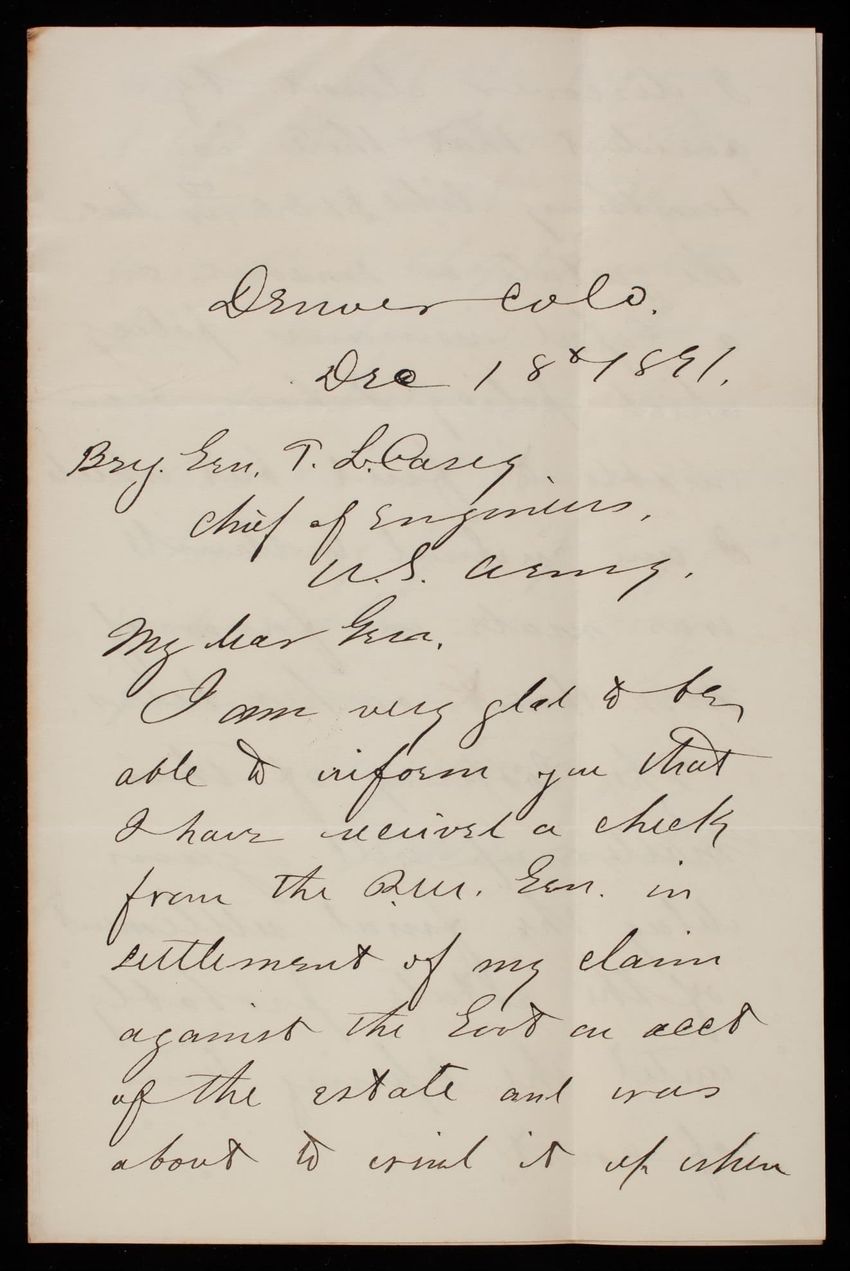 Denver Colo.
Dec 18th 1891.
Brg. Gen. T. L. Casey
Chief of Engineers,
U.S. Army.
My dear Gen.
I am very glad to be
able to inform you that
I have received a check
from the Q.M. Gen. in
settlement of my claim
against the Govt on acct
of the estate and was
about to wind it up when